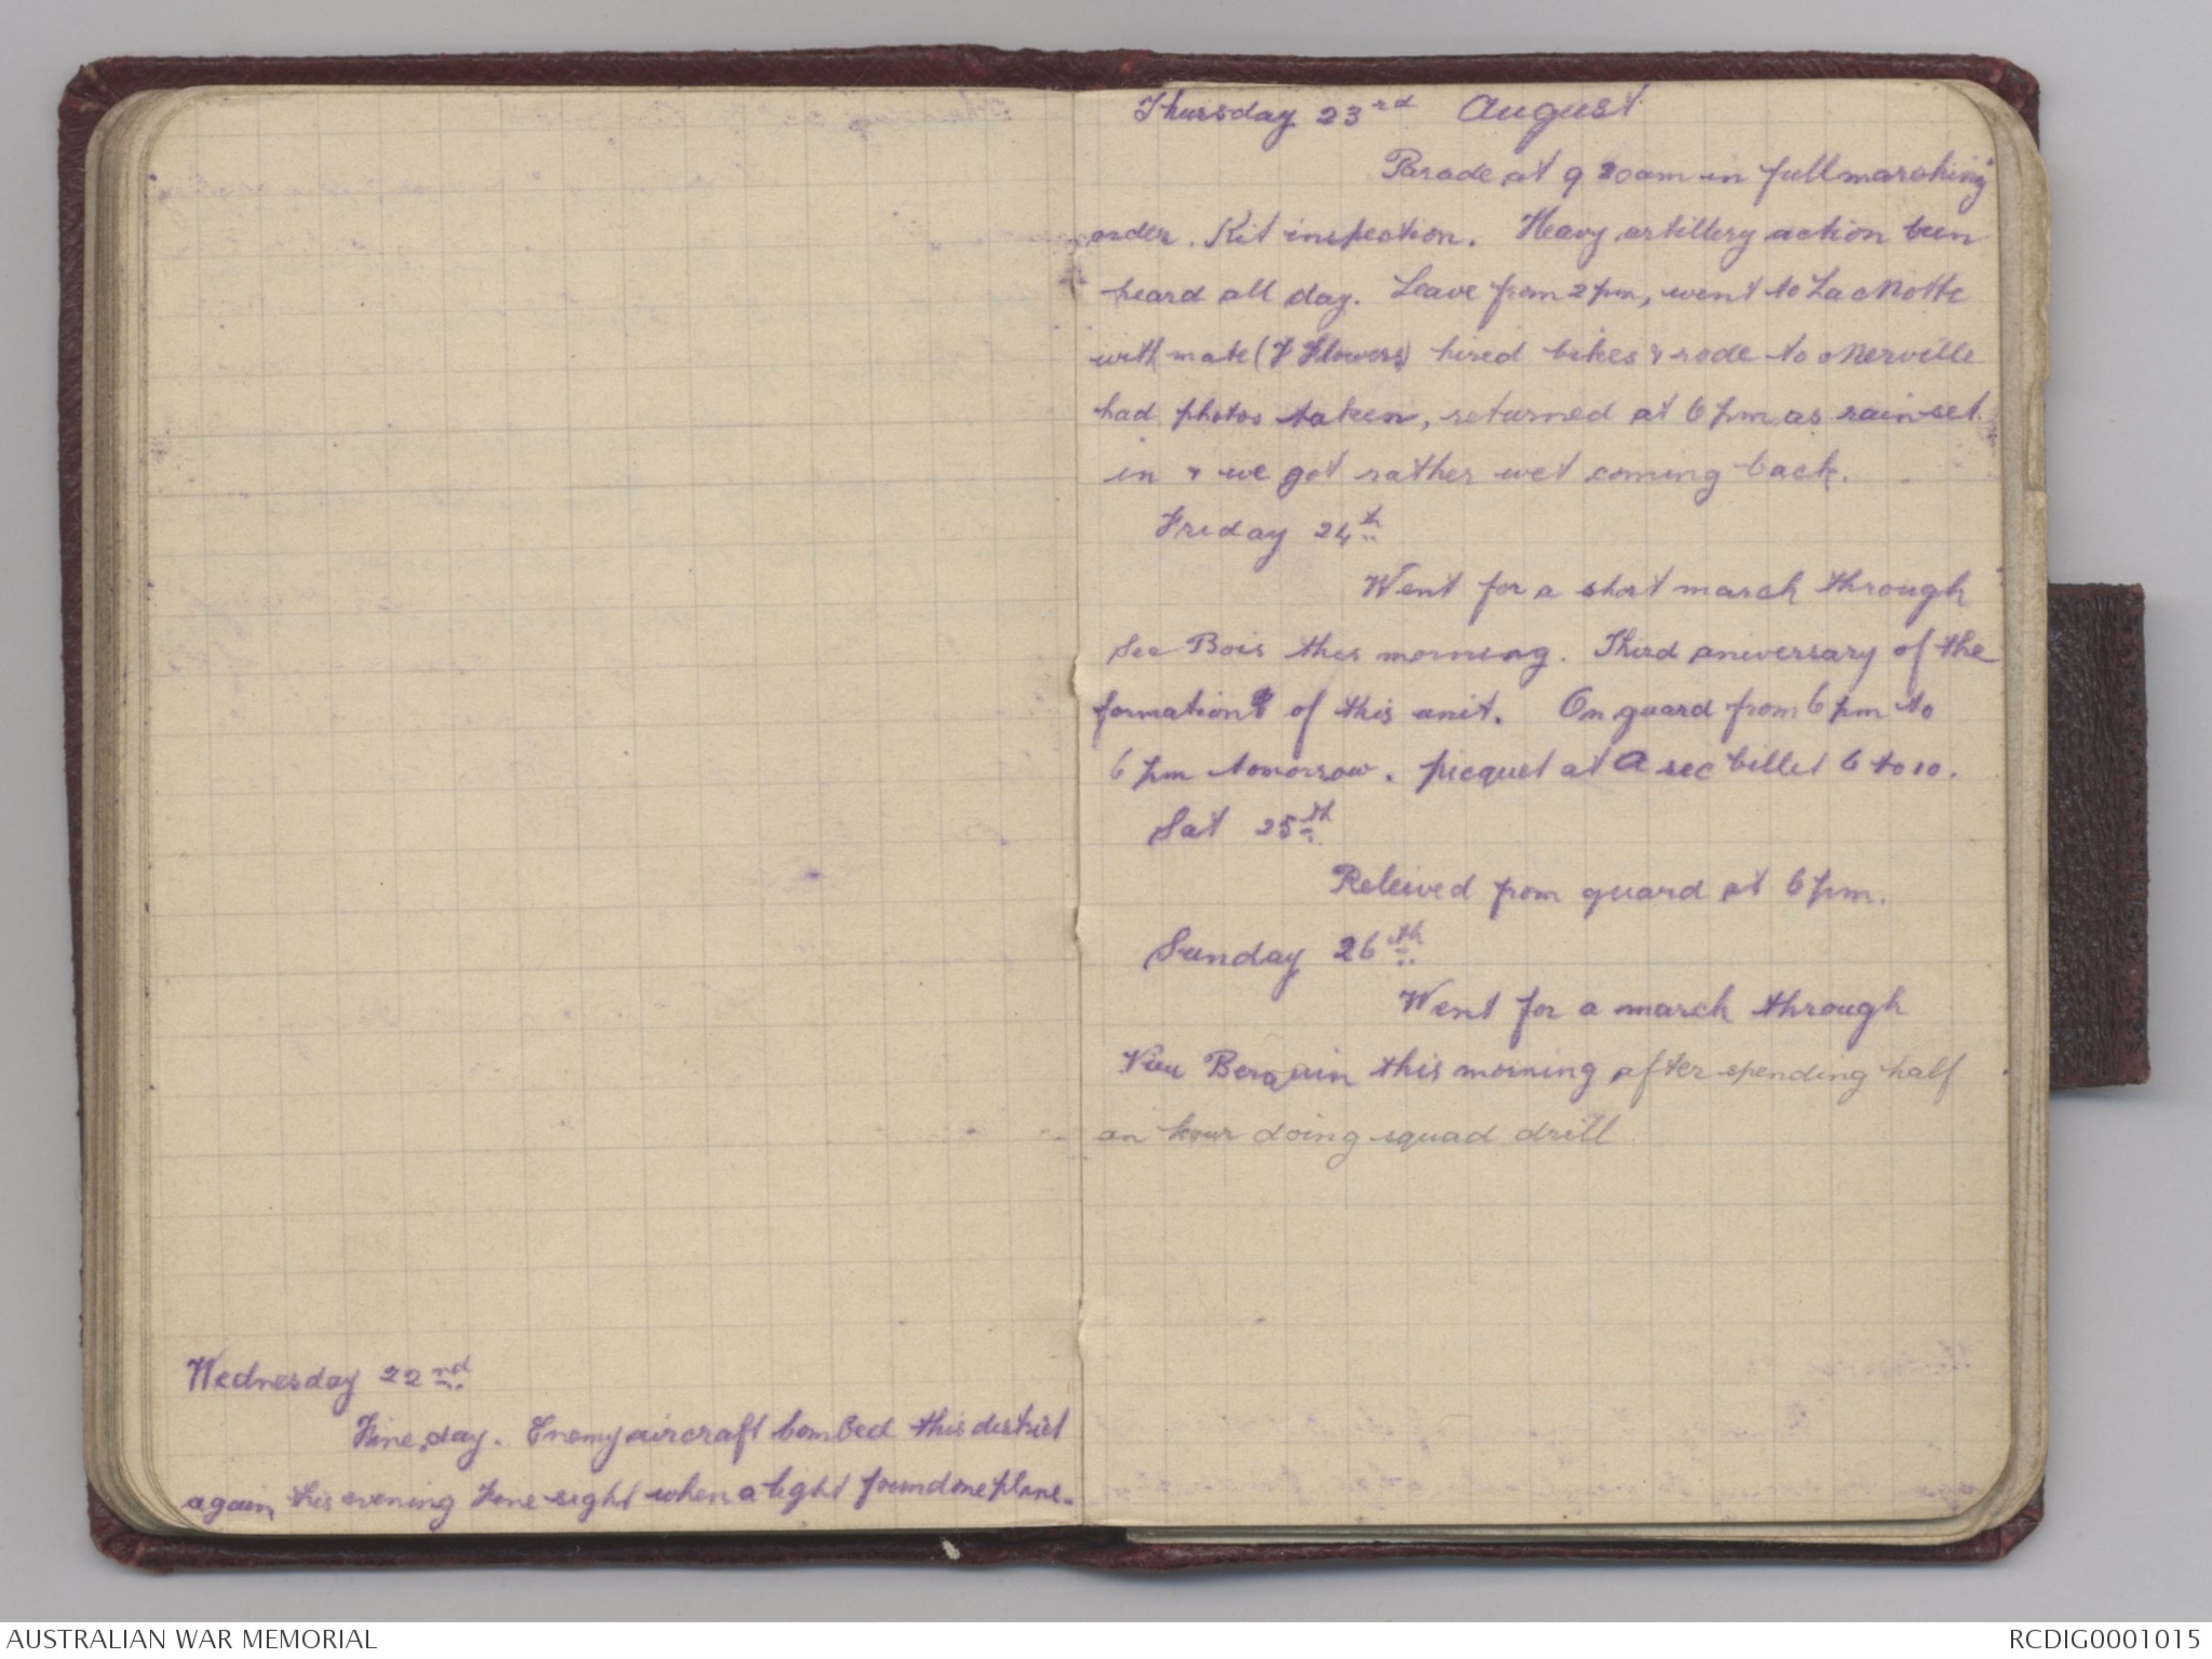 Wednesday 22nd
Fine day. Enemy aircraft bombed this district
again, this evening fine sight when a light found one plane.
Thursday 23rd August
Parade at 9 20am in full marching
order. Kit inspection. Heavy artillery action been
heard all day. Leave from 2pm, went to La Motte
with mate (F Flowers) hired bikes & rode to Merville
had photos taken, returned at 6 pm as rain set
in & we got rather wet coming back.
Friday 24th
Went for a short march through
Sec Bois this morning. Third aniversary of the
formation of this unit. On guard from 6 pm to
6 pm tomorrow. picquet at A sec billet 6 to 10.
Sat 25th
Releived from guard at 6 pm.
Sunday 26th
Went for a march through
Vieu Berquin this morning after spending half
an hour doing squad drill
AUSTRALIAN WAR MEMORIAL
RCDIG0001015